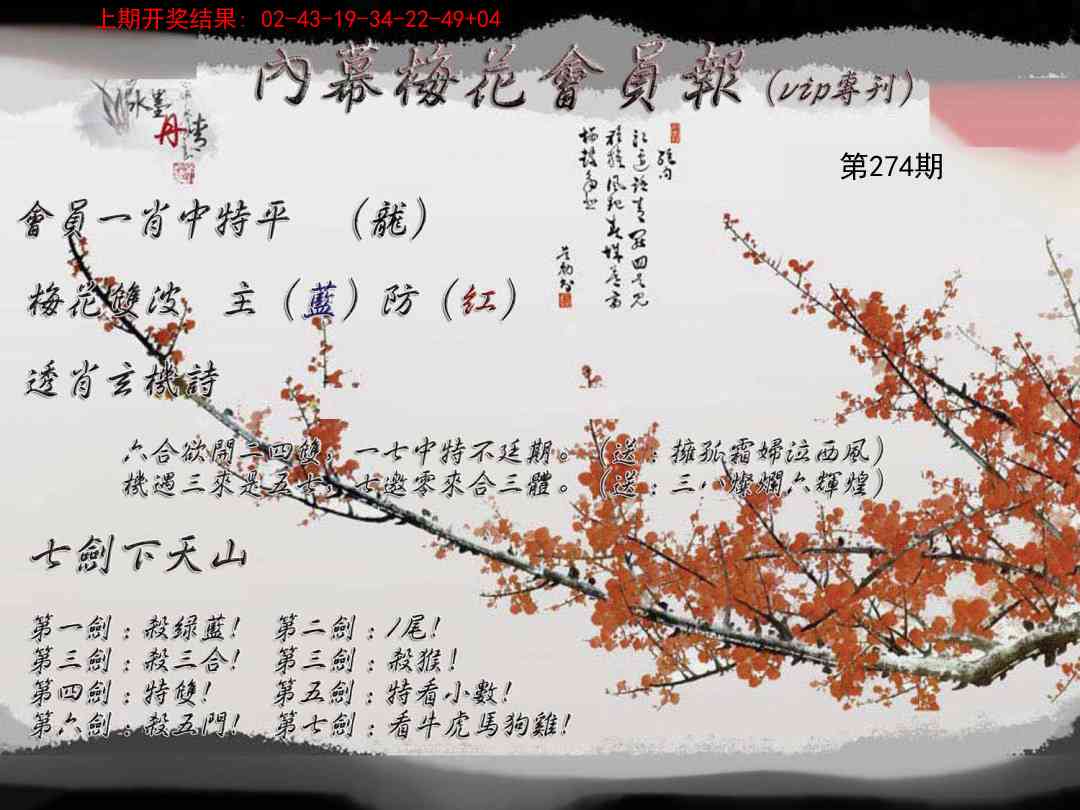 上期开奖结果: 02-43-19-34-22-49+04
內幕梅花會員報(vip專刊)
水墨
丹情
第274期
會員一肖中特平 （龍）
梅花雙波 主（藍）防（红）
透肖玄機詩
六合欲開二四雙，一七中特不廷期。（送：擁孤霜婦泣西風）
機遇三來是五七，七邀零來合三體。（送：三八燦爛六輝煌）
七劍下天山
第一劍：殺绿藍! 第二劍：1尾!
第三劍：殺三合! 第三劍：殺猴!
第四劍：特雙! 第五劍：特看小數!
第六劍：殺五門! 第七劍：看牛虎馬狗雞!